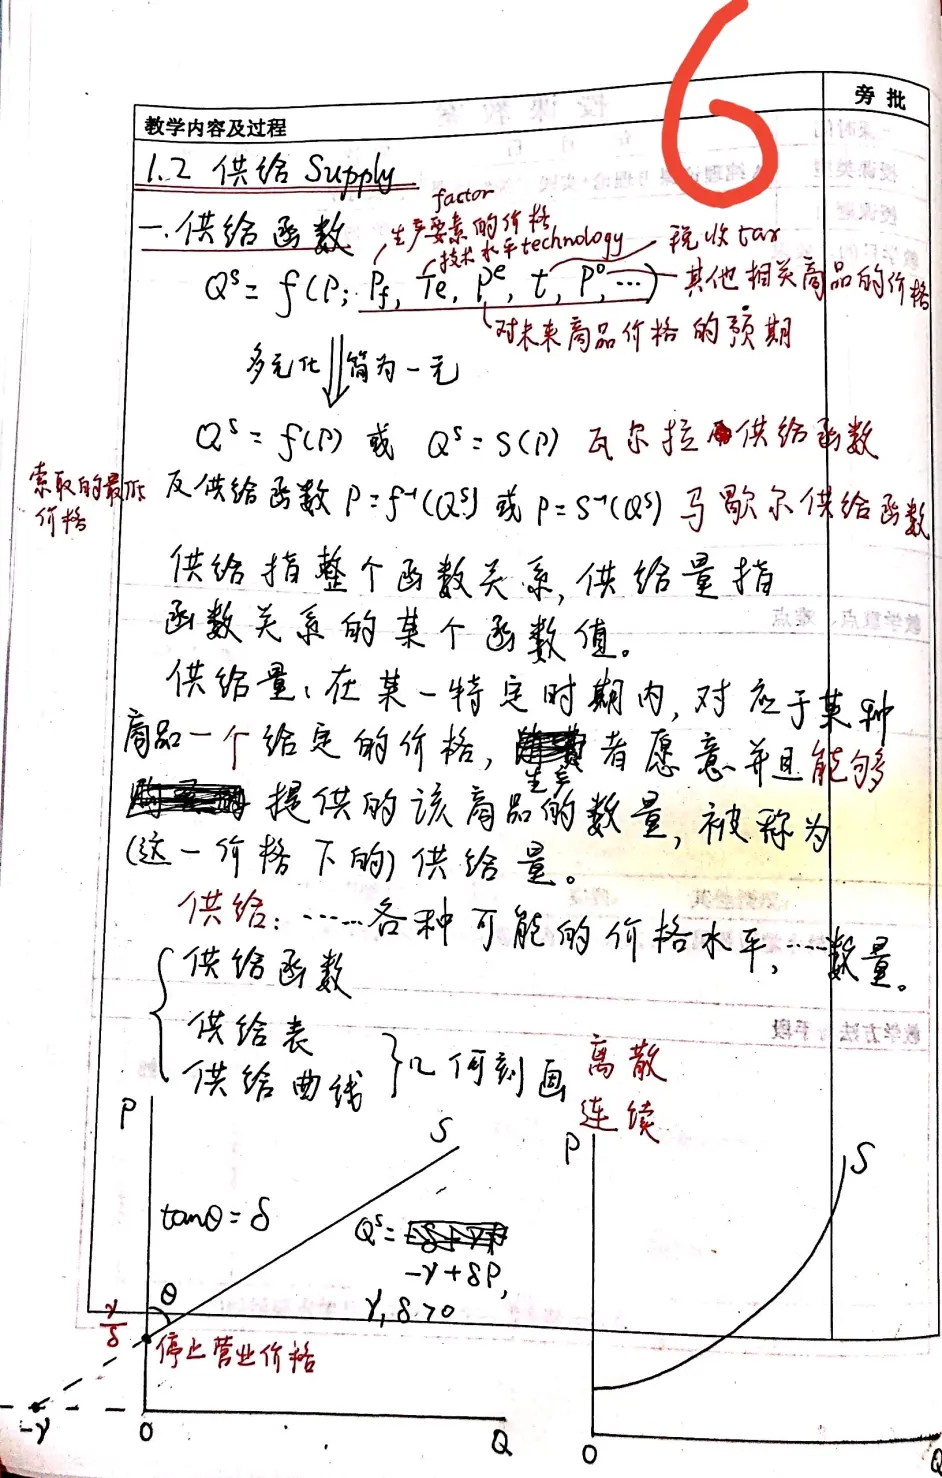 6
旁批
教学内容及过程
1.2 供给 Supply
factor
一.供给函数 生产要素的价格
技术水平technology 税收tax
Qˢ = f(P; P_f, Te, Pᵉ, t, P⁰, …) 其他相关商品的价格
对未来商品价格的预期
多元化 简为一元
Qˢ = f(P) 或 Qˢ = S(P) 瓦尔拉 供给函数
索取的最低
价格
反供给函数 P = f⁻¹(Qˢ) 或 P = S⁻¹(Qˢ) 马歇尔供给函数
供给指整个函数关系, 供给量指
函数关系的某个函数值。
供给量: 在某一特定时期内, 对应于某种
商品一个给定的价格, 生产者愿意并且能够
提供的该商品的数量, 被称为
(这一价格下的) 供给量。
供给: ……各种可能的价格水平, ……数量。
供给函数
供给表
供给曲线
几何刻画 离散
连续
P
S
tanθ = δ
Qˢ =
-γ + δP,
γ, δ > 0
θ
γ/δ
停止营业价格
-γ
0
Q
P
S
0
Q